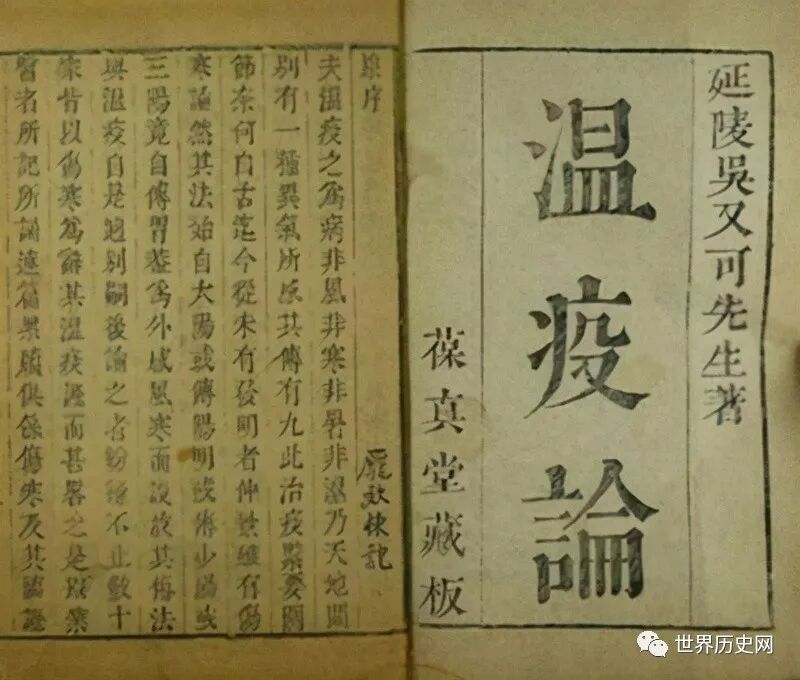 延陵吳又可先生著
温疫論
葆真堂藏板
原序
夫溫疫之爲病非風非寒非暑非濕乃天地間
別有一種異氣所感其傳有九此治疫緊要關
節奈何自古迄今從未有發明者仲景雖有傷
寒論然其法始自太陽或傳陽明或傳少陽或
三陽竟自傳胃葢爲外感風寒而設故其傳法
與温疫自是迥別嗣後論之者紛紛不止數十
家皆以傷寒爲辭其温疫證而甚畧之是以業
醫者所記所誦連篇累牘俱係傷寒及其臨證
世界历史网